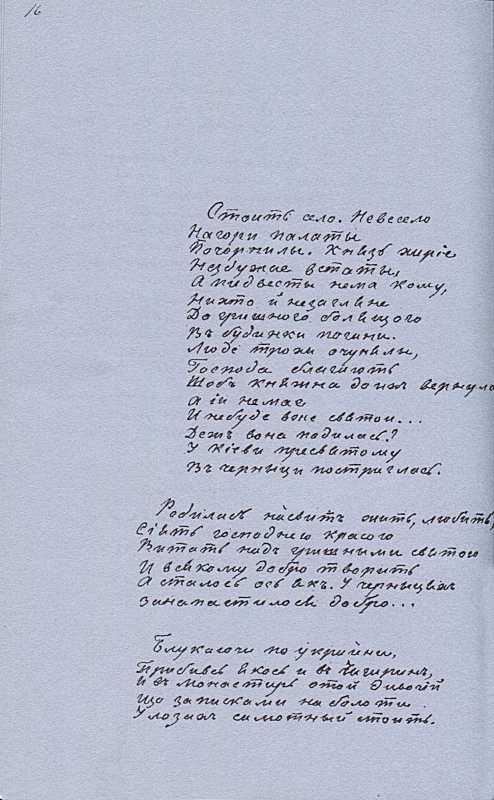 16
Стоить село. Невесело
Нагори палаты
Почорнилы. Князь хиріе
Незбужае встаты,
А пидвесты нема кому,
Нихто й незагляне
До гришного болящого
Въ будинки погани.
Люде трохи очунялы,
Господа благають
Щобъ княжна до ихъ вернулa
А ій немае
И небуде вже святои...
Дежъ вона подилась?
У Кіеви пресвятому
Въ черныци постриглась.
Родилась насвитъ жить, любить,
Сіять господнею красою
Витать надъ гришными святою
И всякому добро творить
А сталось ось якъ. У черныцяхъ
Занапастилося добро...
Блукаючи по украйни,
Прибивсь якось и въ Чигиринъ,
И въ монастирь отой дивочій
Що за писками на болоти
У лозахъ самотный стоить.